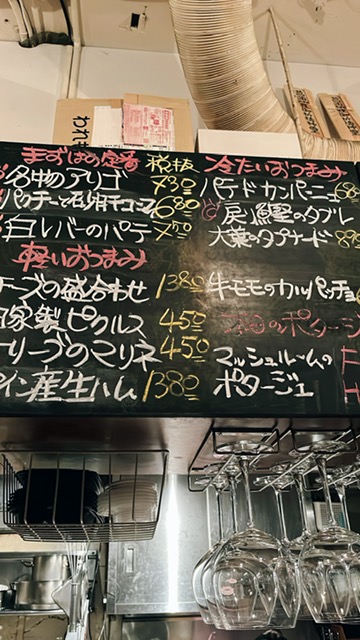 まずはの定番 税抜
名物アリゴ 730
白レバーのパテ 750
軽いおつまみ
チーズの盛合わせ 1380
自家製ピクルス 450
オリーブのマリネ 450
イン産生ハム 1380
冷たいおつまみ
パテドカンパーニュ 68
大葉のタプナード 89
牛モモのカルパッチョ
本日のポタージ
マッシュルームの
ポタージュ